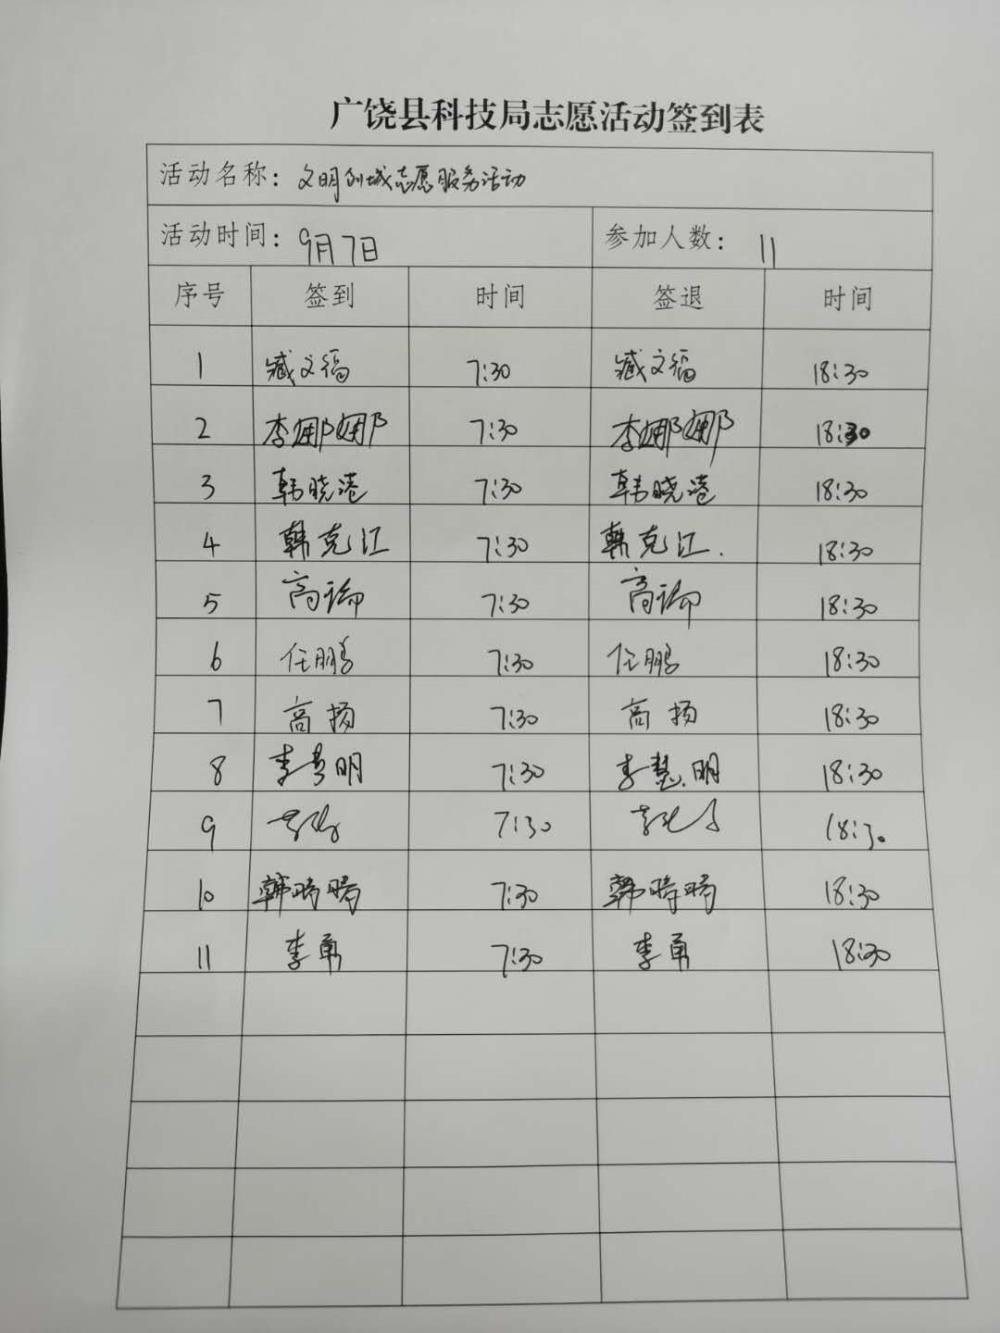 广饶县科技局志愿活动签到表
活动名称：文明创城志愿服务活动
活动时间：9月7日 参加人数：11
序号 签到 时间 签退 时间
1 臧文福 7:30 臧文福 18:30
2 李娜娜 7:30 李娜娜 18:30
3 韩晓港 7:30 韩晓港 18:30
4 韩克江 7:30 韩克江. 18:30
5 高瑜 7:30 高瑜 18:30
6 任鹏 7:30 任鹏 18:30
7 高扬 7:30 高扬 18:30
8 李慧明 7:30 李慧明 18:30
9 7:30 18:30
10 韩 7:30 韩 18:30
11 李勇 7:30 李勇 18:30